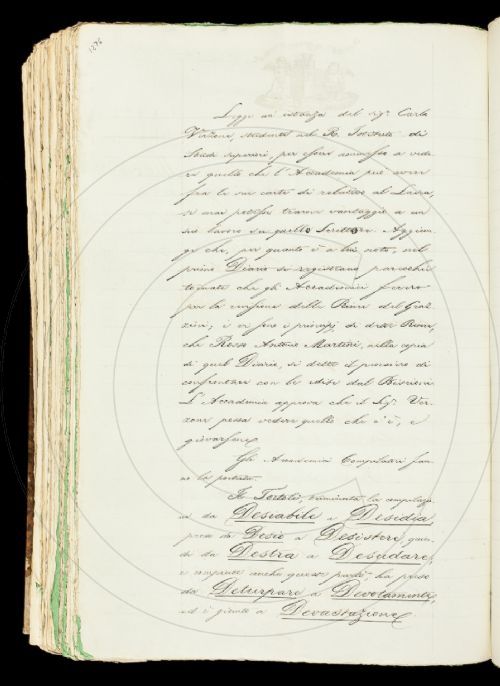 Legge un'istanza del Sig.r Carlo
Verzone, studente nel R. Istituto di
Studi superiori, per essere ammesso a vede-
re quello che l'Accademia può avere
fra le sue carte di relativo al Lasca,
se mai potesse trarne vantaggio a un
suo lavoro su quello Scrittore. Aggiun-
ge che, per quanto è a lui noto, nel
primo Diario si registrano parecchie
tornate che gli Accademici fecero
per la censura delle Rime del Graz-
zini; e in fine i principj di dette Rime,
che Rosso Antonio Martini, nella copia
di quel Diario, si dette il pensiero di
confrontare con le edite dal Biscioni
L'Accademia approva che il Sig.r Ver-
zone possa vedere quello che c'è, e
giovarsene
Gli Accademici Compilatori fan-
no la portata.
Il Tortoli, esaminata la compilazio-
ne da Desiabile a Desidia
poca da Desio a Desistere, quin-
di da Destra a Desudare,
e compiuta anche questa parte, ha preso
da Deturpare a Devotamente,
ed è giunto a Devastazione.